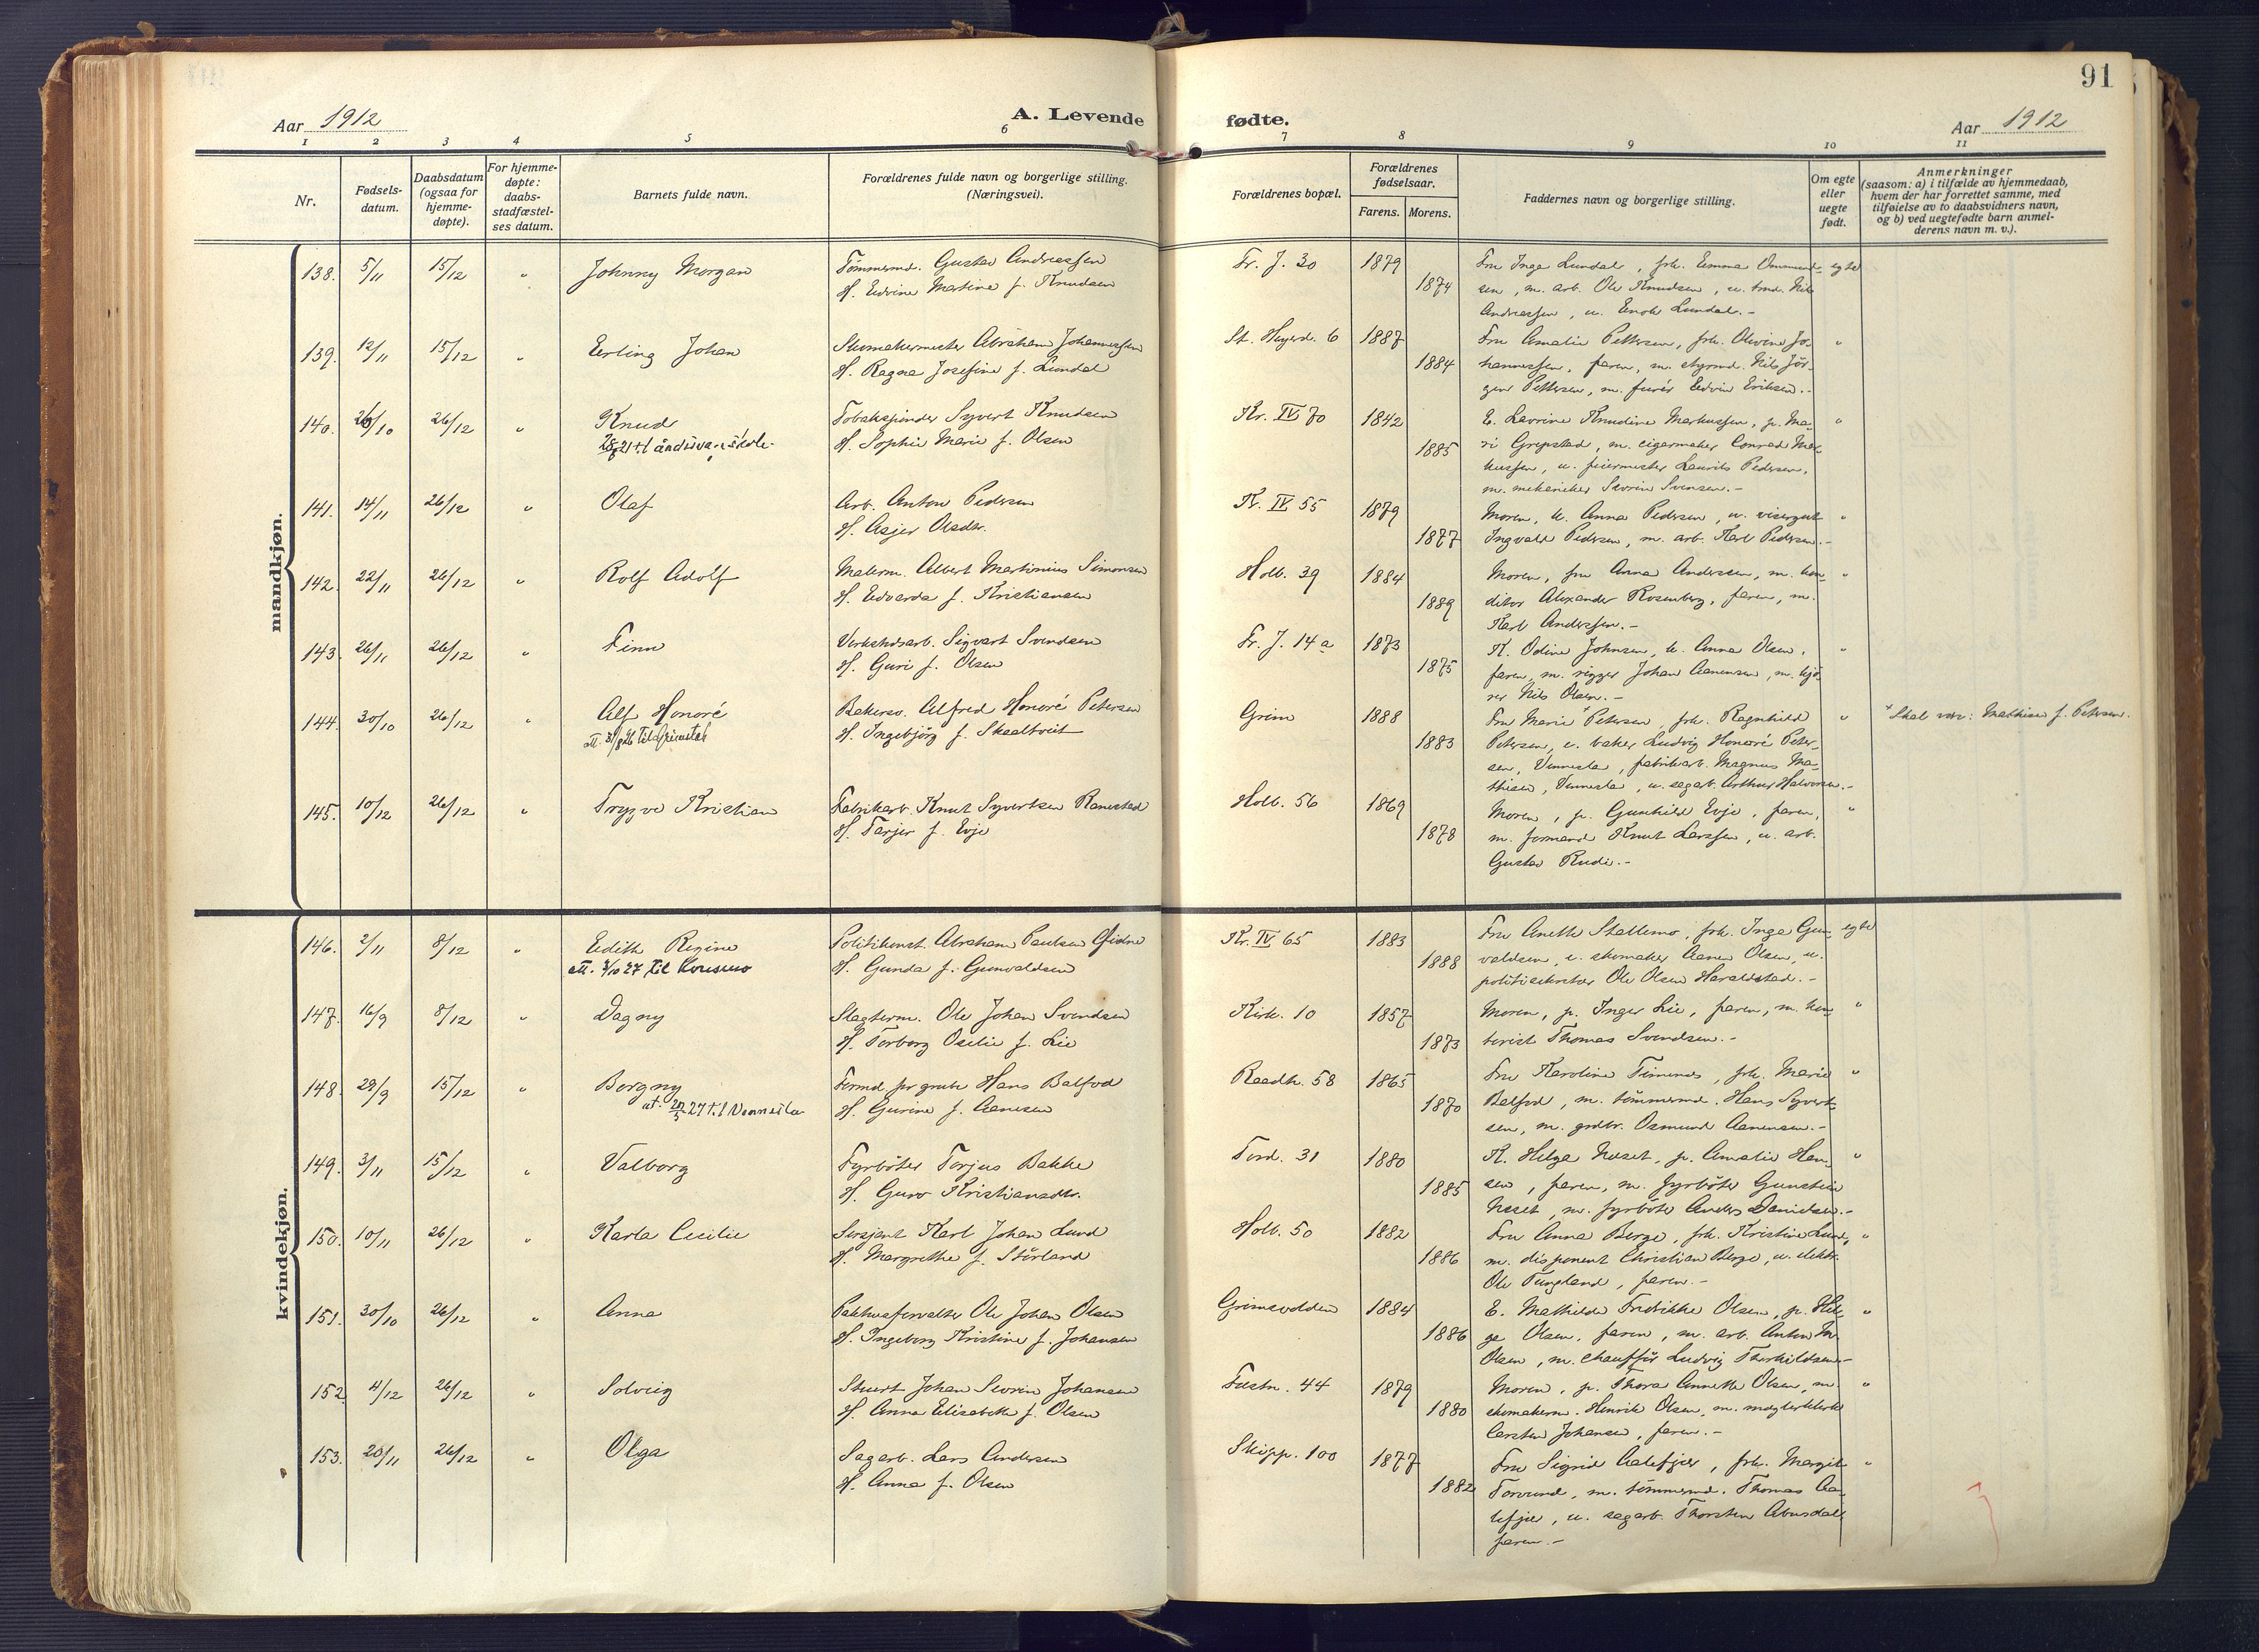 91
Aar 1912
A. Levende
fødte.
Aar 1912
1 2 3 4 5 6 7 8 9 10 11
Nr.
Fødsels-
datum.
Daabsdatum
(ogsaa for
hjemme-
døpte).
For hjemme-
døpte:
daabs-
stadfæstel-
ses datum.
Barnets fulde navn.
Forældrenes fulde navn og borgerlige stilling.
(Næringsvei).
Forældrenes bopæl.
Forældrenes
fødselsaar.
Farens. Morens.
Faddernes navn og borgerlige stilling.
Om egte
eller
uegte
født.
Anmerkninger
(saasom: a) i tilfælde av hjemmedaab,
hvem der har forrettet samme, med
tilføielse av to daabsvidners navn,
og b) ved uegtefødte barn anmel-
derens navn m. v.).
mandkjøn.
138. 5/11 15/12 " Johnny Morgan
Tømmermd. Gustav Andreassen
H. Edvine Martine f. Knudsen
Fr. J. 30 1879
1874
Fru Inga Lundal, frk. Emma Ommund- egte
sen, m. arb. Ole Knudsen, u. tmd. Nils
Andreassen, u. Enok Lundal.-
139. 12/11 15/12 " Erling Johan
Skomakermester Abraham Johannessen
H. Ragna Josefine f. Lundal
St. Hegerd. 6 1887
1884
Fru Amalie Pettersen, frk. Olivine Jo- "
hannessen, faren, m. styrmd. Nils Jør-
gen Pettersen, m. furér Edvin Eriksen.-
140. 26/10 26/12 " Knud
Tobakspinder Syvert Knudsen
H. Sophie Marie f. Olsen
Kr. IV 70 1842
1885
E. Lavrine Knudine Markussen, p. Ma- "
ri Grepstad, m. cigarmaker Conrad Mar-
kussen, u. feiermester Laurits Pedersen,
m. mekaniker Severin Svensen.-
141. 14/11 26/12 " Olaf
Arb. Anton Pedersen
H. Asjer Olsdtr.
Kr. IV 55 1879
1877
Moren, k. Anna Pedersen, u. visergut "
Ingvald Pedersen, m. arb. Karl Pedersen.-
142. 22/11 26/12 " Rolf Adolf
Malerm. Albert Martinius Simonsen
H. Edvarda f. Kristiansen
Holb. 39 1884
1889
Moren, fru Anna Andersen, m. kon- "
ditor Alexander Rosenberg, faren, m.
Karl Anderssen.-
143. 26/11 26/12 " Finn
Verkstedsarb. Sigvart Svendsen
H. Guri f. Olsen
Fr. J. 14 a 1873
1875
K. Odine Johnsen, k. Anna Olsen, "
faren, m. rigger Johan Aanensen, m. kjø-
rer Nils Olsen.-
144. 30/10 26/12 " Alf Honoré
Bakersv. Alfred Honoré Petersen
H. Ingebjørg f. Skaaltveit
Grim 1888
1883
Fru Marie × Petersen, frk. Ragnhild "
Petersen, u. baker Ludvig Honoré Peter-
sen, Vennesla, fabrikarb. Magnus Ma-
thisen, Vennesla, u. sagarb. Arthur Halvorsen.-
× Skal være: Mathisen f. Petersen.
145. 10/12 26/12 " Trygve Kristian
Fabrikarb. Knut Syvertsen Ranestad
H. Tarjer f. Evje
Holb. 56 1869
1878
Moren, p. Gunhild Evje, faren, "
m. formand Knut Larssen, u. arb.
Gustav Rudi.-
kvindekjøn.
146. 2/11 8/12 " Edith Regine
Politikonst. Abraham Paulsen Eidne
H. Gunda f. Gunvaldsen
Kr. IV 65 1883
1888
Fru Anette Stallemo, frk. Inga Gun- egte
valdsen, u. skomaker Aanen Olsen, u.
politisekretær Ole Olsen Haraldstad.-
147. 16/9 8/12 " Dagny
Slagterm. Ole Johan Svendsen
H. Torborg Oselie f. Lie
Kirk. 10 1857
1873
Moren, p. Inger Lie, faren, m. kon- "
torist Thomas Svendsen.-
148. 29/9 15/12 " Borgny
ut. 20/5 27 til Vennesla
Formd. før grube Hans Balfod
H. Gurine f. Aanesen
Raadh. 58 1865
1870
Fru Karoline Timenes, frk. Marie "
Balfod, m. tømmermd. Hans Syvert-
sen, m. grdbr. Osmund Aanensen.-
149. 3/11 15/12 " Valborg
Fyrbøter Torjus Bakke
H. Guro Kristiansdtr.
Tord. 31 1880
1885
K. Helga Naset, p. Amalie Han- "
sen, faren, m. fyrbøter Gunstein
Naset, m. fyrbøter Anders Danielsen.-
150. 10/11 26/12 " Karla Cecilie
Sersjant Karl Johan Lund
H. Margrethe f. Størland
Holb. 50 1882
1886
Fru Anna Berge, frk. Kristine Lund, "
m. disponent Christian Berge, u. elektr.
Ole Tungland, faren.-
151. 30/10 26/12 " Anna
Pakhusforvalter Ole Johan Olsen
H. Ingeborg Kristine f. Johansen
Grimsvolden 1884
1886
E. Mathilde Fredrikke Olsen, p. Hel- "
ga Olsen, faren, m. arb. Anton M.
Olsen, m. chauffør Ludvig Therkildsen.-
152. 4/12 26/12 " Solveig
Stuert Johan Severin Johansen
H. Anna Elisabeth f. Olsen
Festn. 44 1879
1880
Moren, p. Thora Annette Olsen, m. "
skomakerm. Henrik Olsen, m. mæglerklerk
Carsten Johansen, faren.-
153. 20/11 26/12 " Olga
Sagarb. Lars Andersen
H. Anna f. Olsen
Skipp. 100 1877
1882
Fru Sigrid Aalefjær, frk. Margit "
Torvund, m. tømmermd. Thomas Aa-
lefjær, u. sagarb. Thorsten Abusdal
faren.-